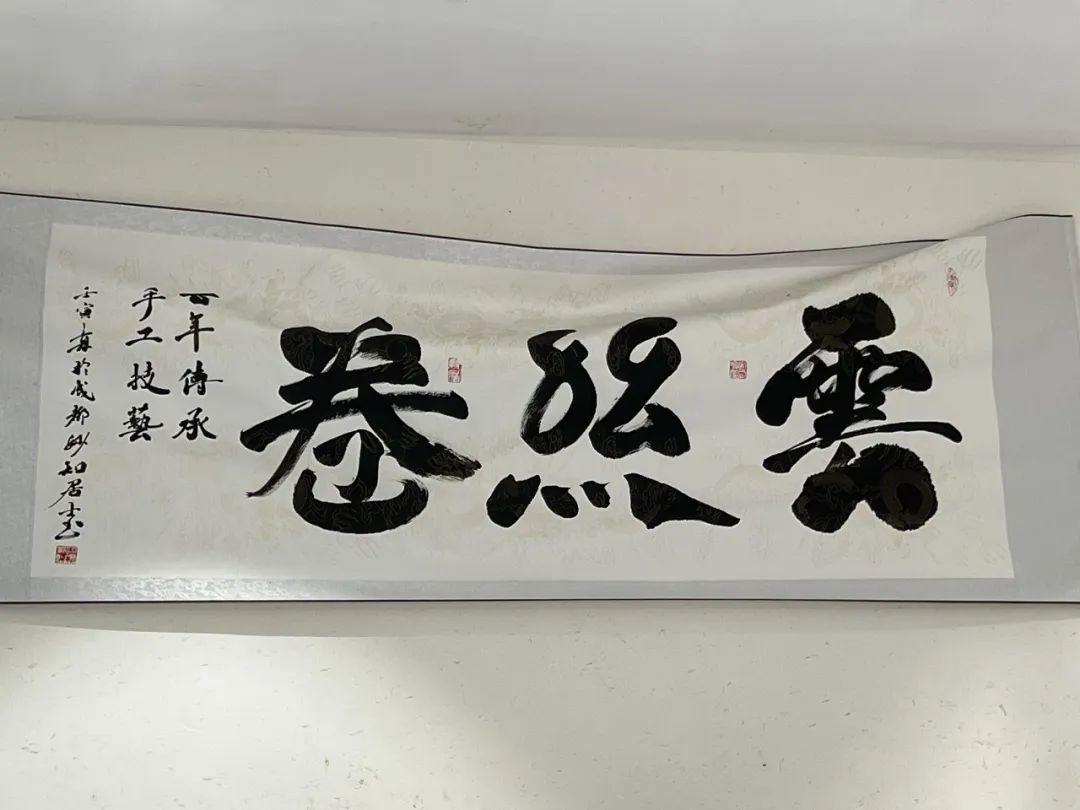 雲絲卷
百年傳承
手工技藝
壬寅春於成都妙知居書